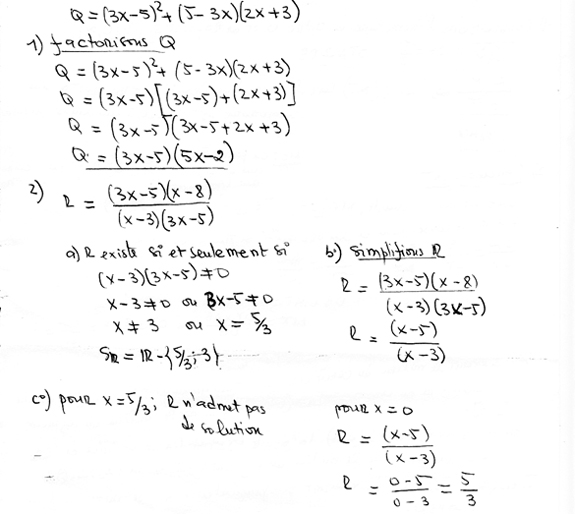 Q = (3x-5)²+ (5-3x)(2x+3)
1) factorisons Q
Q = (3x-5)²+ (5-3x)(2x+3)
Q = (3x-5)[(3x-5)+(2x+3)]
Q = (3x-5)(3x-5+2x+3)
Q = (3x-5)(5x-2)
2) R = (3x-5)(x-8) / (x-3)(3x-5)
a) R existe si et seulement si
(x-3)(3x-5)≠0
x-3≠0 ou 3x-5≠0
x≠3 ou x = 5/3
S_R = IR-{5/3;3}
b) simplifions R
R = (3x-5)(x-8) / (x-3)(3x-5)
R = (x-5) / (x-3)
c) pour x = 5/3; R n'admet pas
de solution
pour x = 0
R = (x-5) / (x-3)
R = 0-5 / 0-3 = 5/3